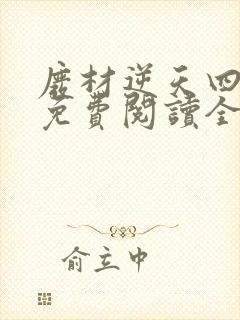 磨材逆天四
免費閱讀全
俞立中